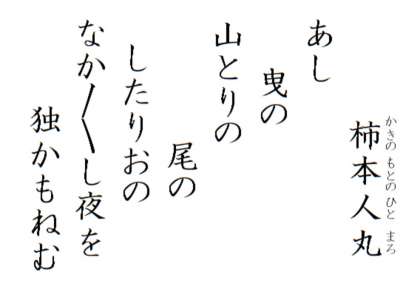 柿本人丸
かきの もとの ひと まろ
あし
曳の
山とりの
尾の
したりおの
なか〳〵し夜を
独かもねむ